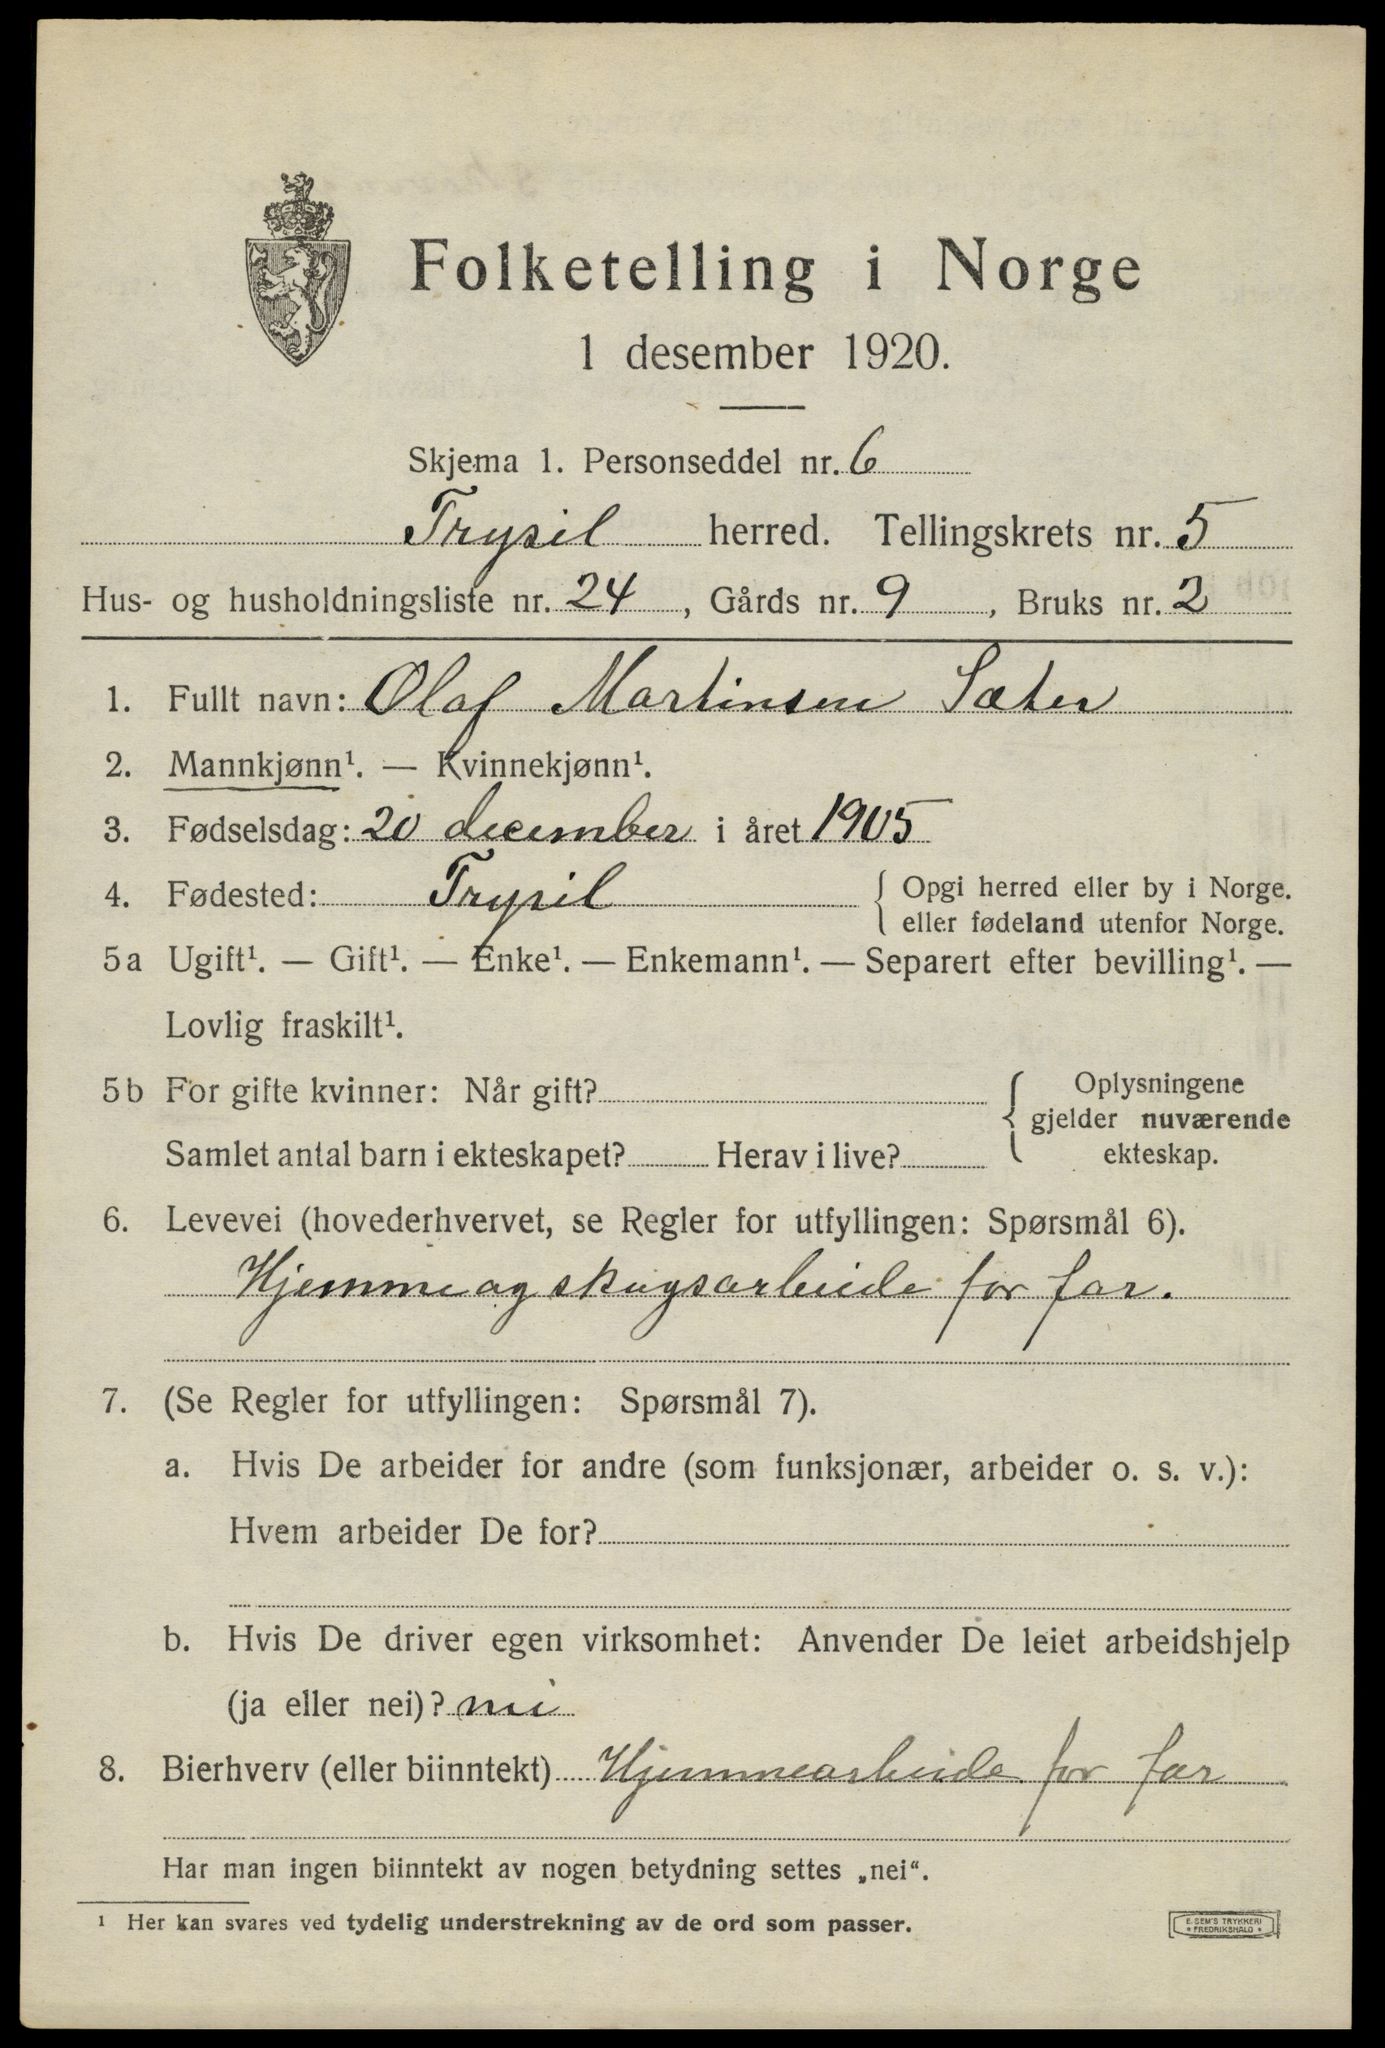 Folketelling i Norge
1 desember 1920.
Skjema 1. Personseddel nr. 6
Trysil herred. Tellingskrets nr. 5
Hus- og husholdningsliste nr. 24, Gårds nr. 9, Bruks nr. 2
1. Fullt navn: Olaf Martinsen Sæter
2. Mannkjønn¹. — Kvinnekjønn¹.
3. Fødselsdag: 20 december i året 1905
4. Fødested: Trysil { Opgi herred eller by i Norge.
eller fødeland utenfor Norge.
5a Ugift¹. — Gift¹. — Enke¹. — Enkemann¹. — Separert efter bevilling¹. —
Lovlig fraskilt¹.
5b For gifte kvinner: Når gift? { Oplysningene
gjelder nuværende
Samlet antal barn i ekteskapet? Herav i live? ekteskap.
6. Levevei (hovederhvervet, se Regler for utfyllingen: Spørsmål 6).
Hjemme og skogsarbeide for far.
7. (Se Regler for utfyllingen: Spørsmål 7).
a. Hvis De arbeider for andre (som funksjonær, arbeider o. s. v.):
Hvem arbeider De for?
b. Hvis De driver egen virksomhet: Anvender De leiet arbeidshjelp
(ja eller nei)? nei
8. Bierhverv (eller biinntekt) Hjemmearbeide for far
Har man ingen biinntekt av nogen betydning settes „nei“.
¹ Her kan svares ved tydelig understrekning av de ord som passer.
E. SEM'S TRYKKERI
* FREDRIKSHALD *